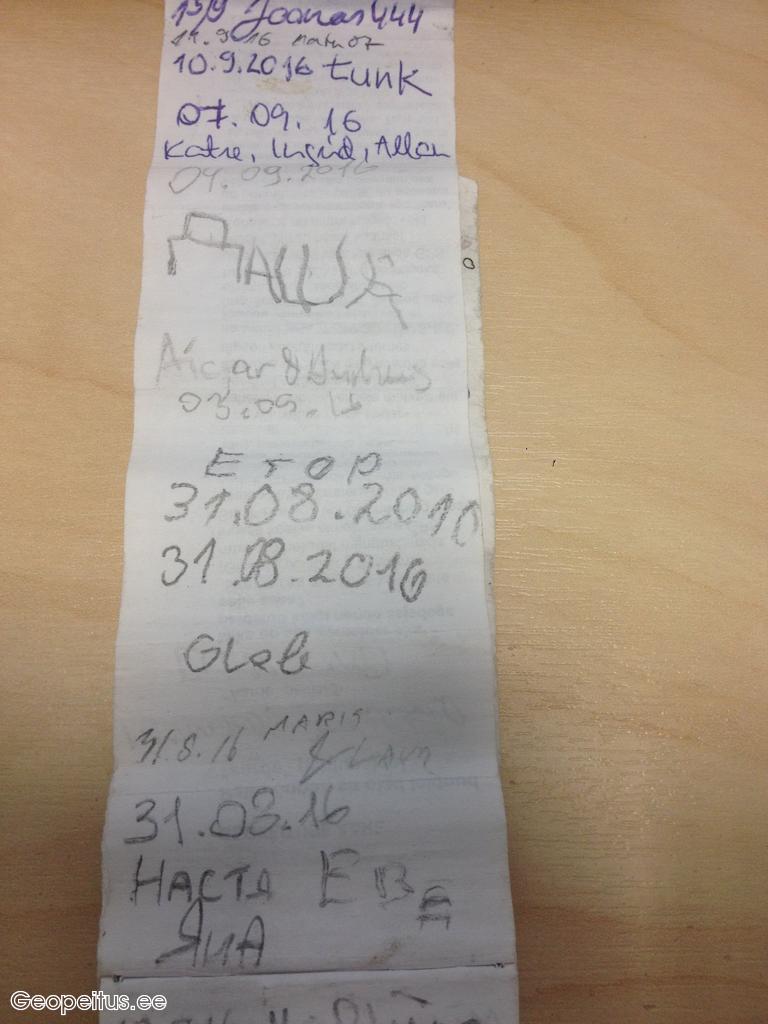 13/9 Joonas444
11.9.16
10.9.2016 tunk
07.09.16
Katre, Ingrid, Allan
04.09.2016
Aigar &
03.09.16
ЕГОР
31.08.2016
31.08.2016
Gleb
31.8.16 MARIS
31.08.16
НАСТЯ ЕВА
ЯНА
Geopeitus.ee